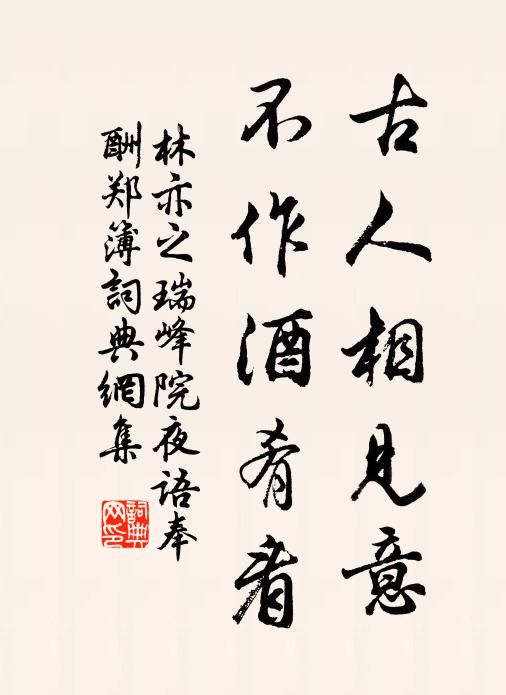 古人相見意
不作酒肴看
林亦之瑞峰院夜語奉
酬郑簿詞典網集
詞典
网印